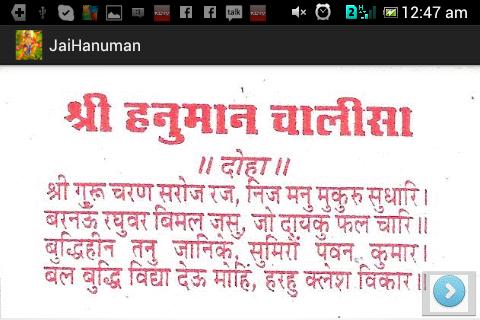 KDTV
talk
KDTV
2
12:47 am
JaiHanuman
श्री हनुमान चालीसा
॥ दोहा ॥
श्री गुरू चरण सरोज रज, निज मनु मुकुरु सुधारि।
बरनऊँ रघुवर बिमल जसु, जो दायकु फल चारि॥
बुद्धिहीन तनु जानिके, सुमिरौं पवन कुमार।
बल बुद्धि विद्या देऊ मोहिं, हरहु क्लेश विकार॥